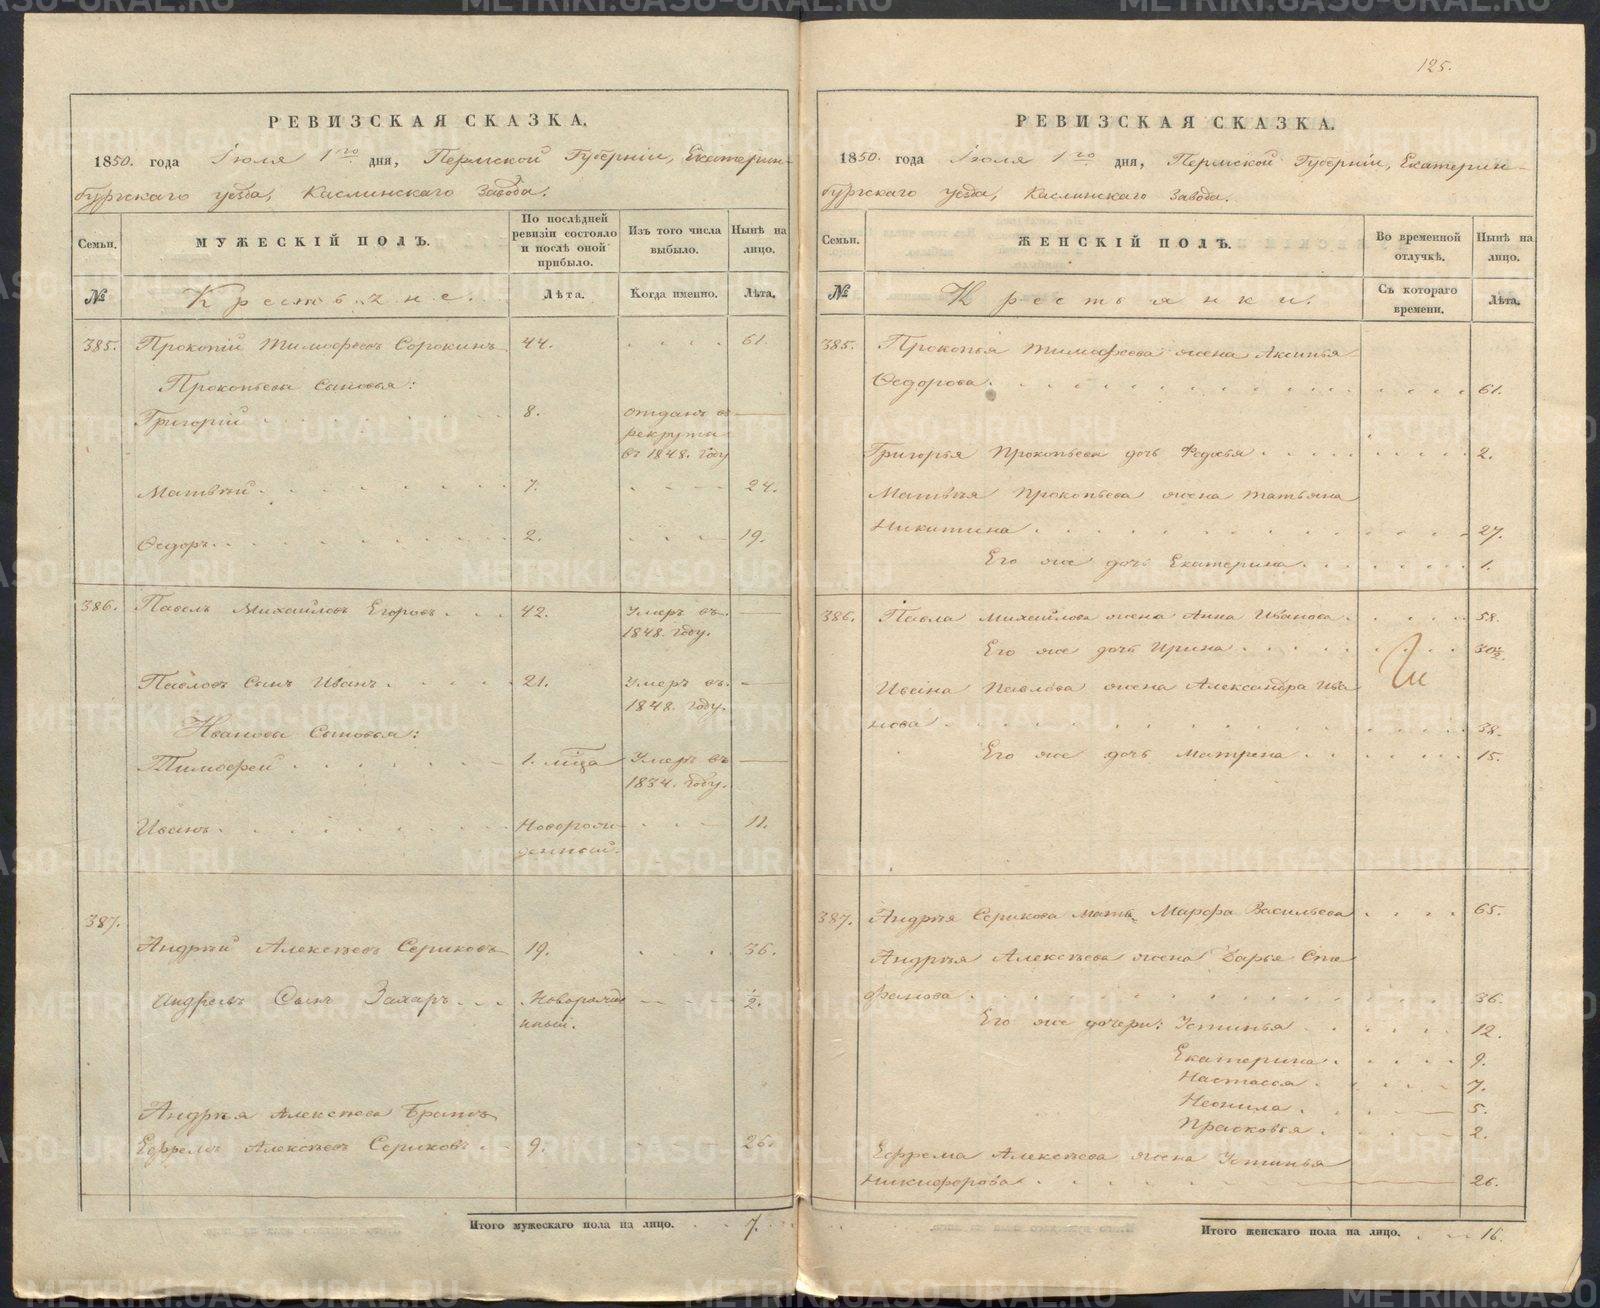 125.
РЕВИЗСКАЯ СКАЗКА.
1850. года Іюля 1го дня, Пермской Губерніи, Екатерин-
бургскаго уѣзда, Каслинскаго Завода.
Семьи.
МУЖЕСКІЙ ПОЛЪ.
По послѣдней ревизіи состояло и послѣ оной прибыло.
Изъ того числа выбыло.
Нынѣ на лицо.
№
Крестьяне.
Лѣта.
Когда именно.
Лѣта.
385. Прокопій Тимофеевъ Сорокинъ 44. 61.
Прокопьева Сыновья:
Григорій 8. отданъ въ
рекруты
въ 1848. году
Матвѣй 7. 24.
Ѳедоръ 2. 19.
386. Павелъ Михайловъ Егоровъ 42. Умеръ въ
1848. году.
Павловъ Сынъ Иванъ 21. Умеръ въ
1848. году.
Ивановы Сыновья:
Тимофей 1. мѣсца Умеръ въ
1834. году.
Иванъ Новорож- 11.
денный.
387.
Андрѣй Алексѣевъ Сериковъ 19. 36.
Андреевъ Сынъ Захаръ Новорожде
нный. ½.
Андрѣя Алексѣева Братъ
Ефремъ Алексѣевъ Сериковъ 9. 26.
Итого мужескаго пола на лицо. 7.
РЕВИЗСКАЯ СКАЗКА.
1850. года Іюля 1го дня, Пермской Губерніи, Екатерин-
бургскаго уѣзда, Каслинскаго Завода.
Семьи.
ЖЕНСКІЙ ПОЛЪ.
Во временной отлучкѣ.
Нынѣ на лицо.
№
Крестьянки.
Съ котораго времени.
Лѣта.
385. Прокопья Тимофеева жена Аксинья
Ѳедорова 61.
Григорья Прокопьева дочь Федосья 2.
Матвѣя Прокопьева жена Татьяна
Никитина 27.
Его же дочь Екатерина 1.
386. Павла Михайлова жена Анна Иванова 58.
Его же дочь Ирина 30½.
Ивана Павлова жена Александра Ива
нова 38.
Его же дочь Матрена 15.
387. Андрѣя Серикова мать Марфа Васильева 65.
Андрѣя Алексѣева жена Дарья Сте
фанова 36.
Его же дочери: Устинья 12.
Екатерина 9.
Настасья 7.
Неонила 5.
Прасковья 2.
Ефрема Алексѣева жена Устинья
Никифорова 26.
Итого женскаго пола на лицо. 16.
METRIKI.GASO-URAL.RU